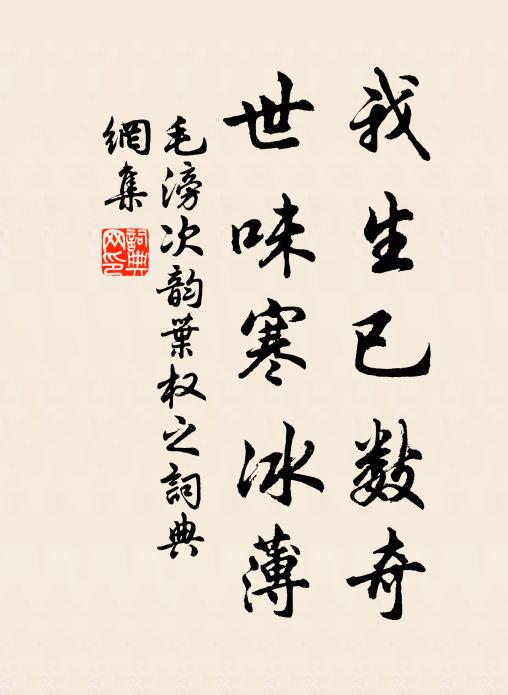 我生已数奇
世味寒冰薄
毛滂次韵葉权之詞典
網集
詞典網印